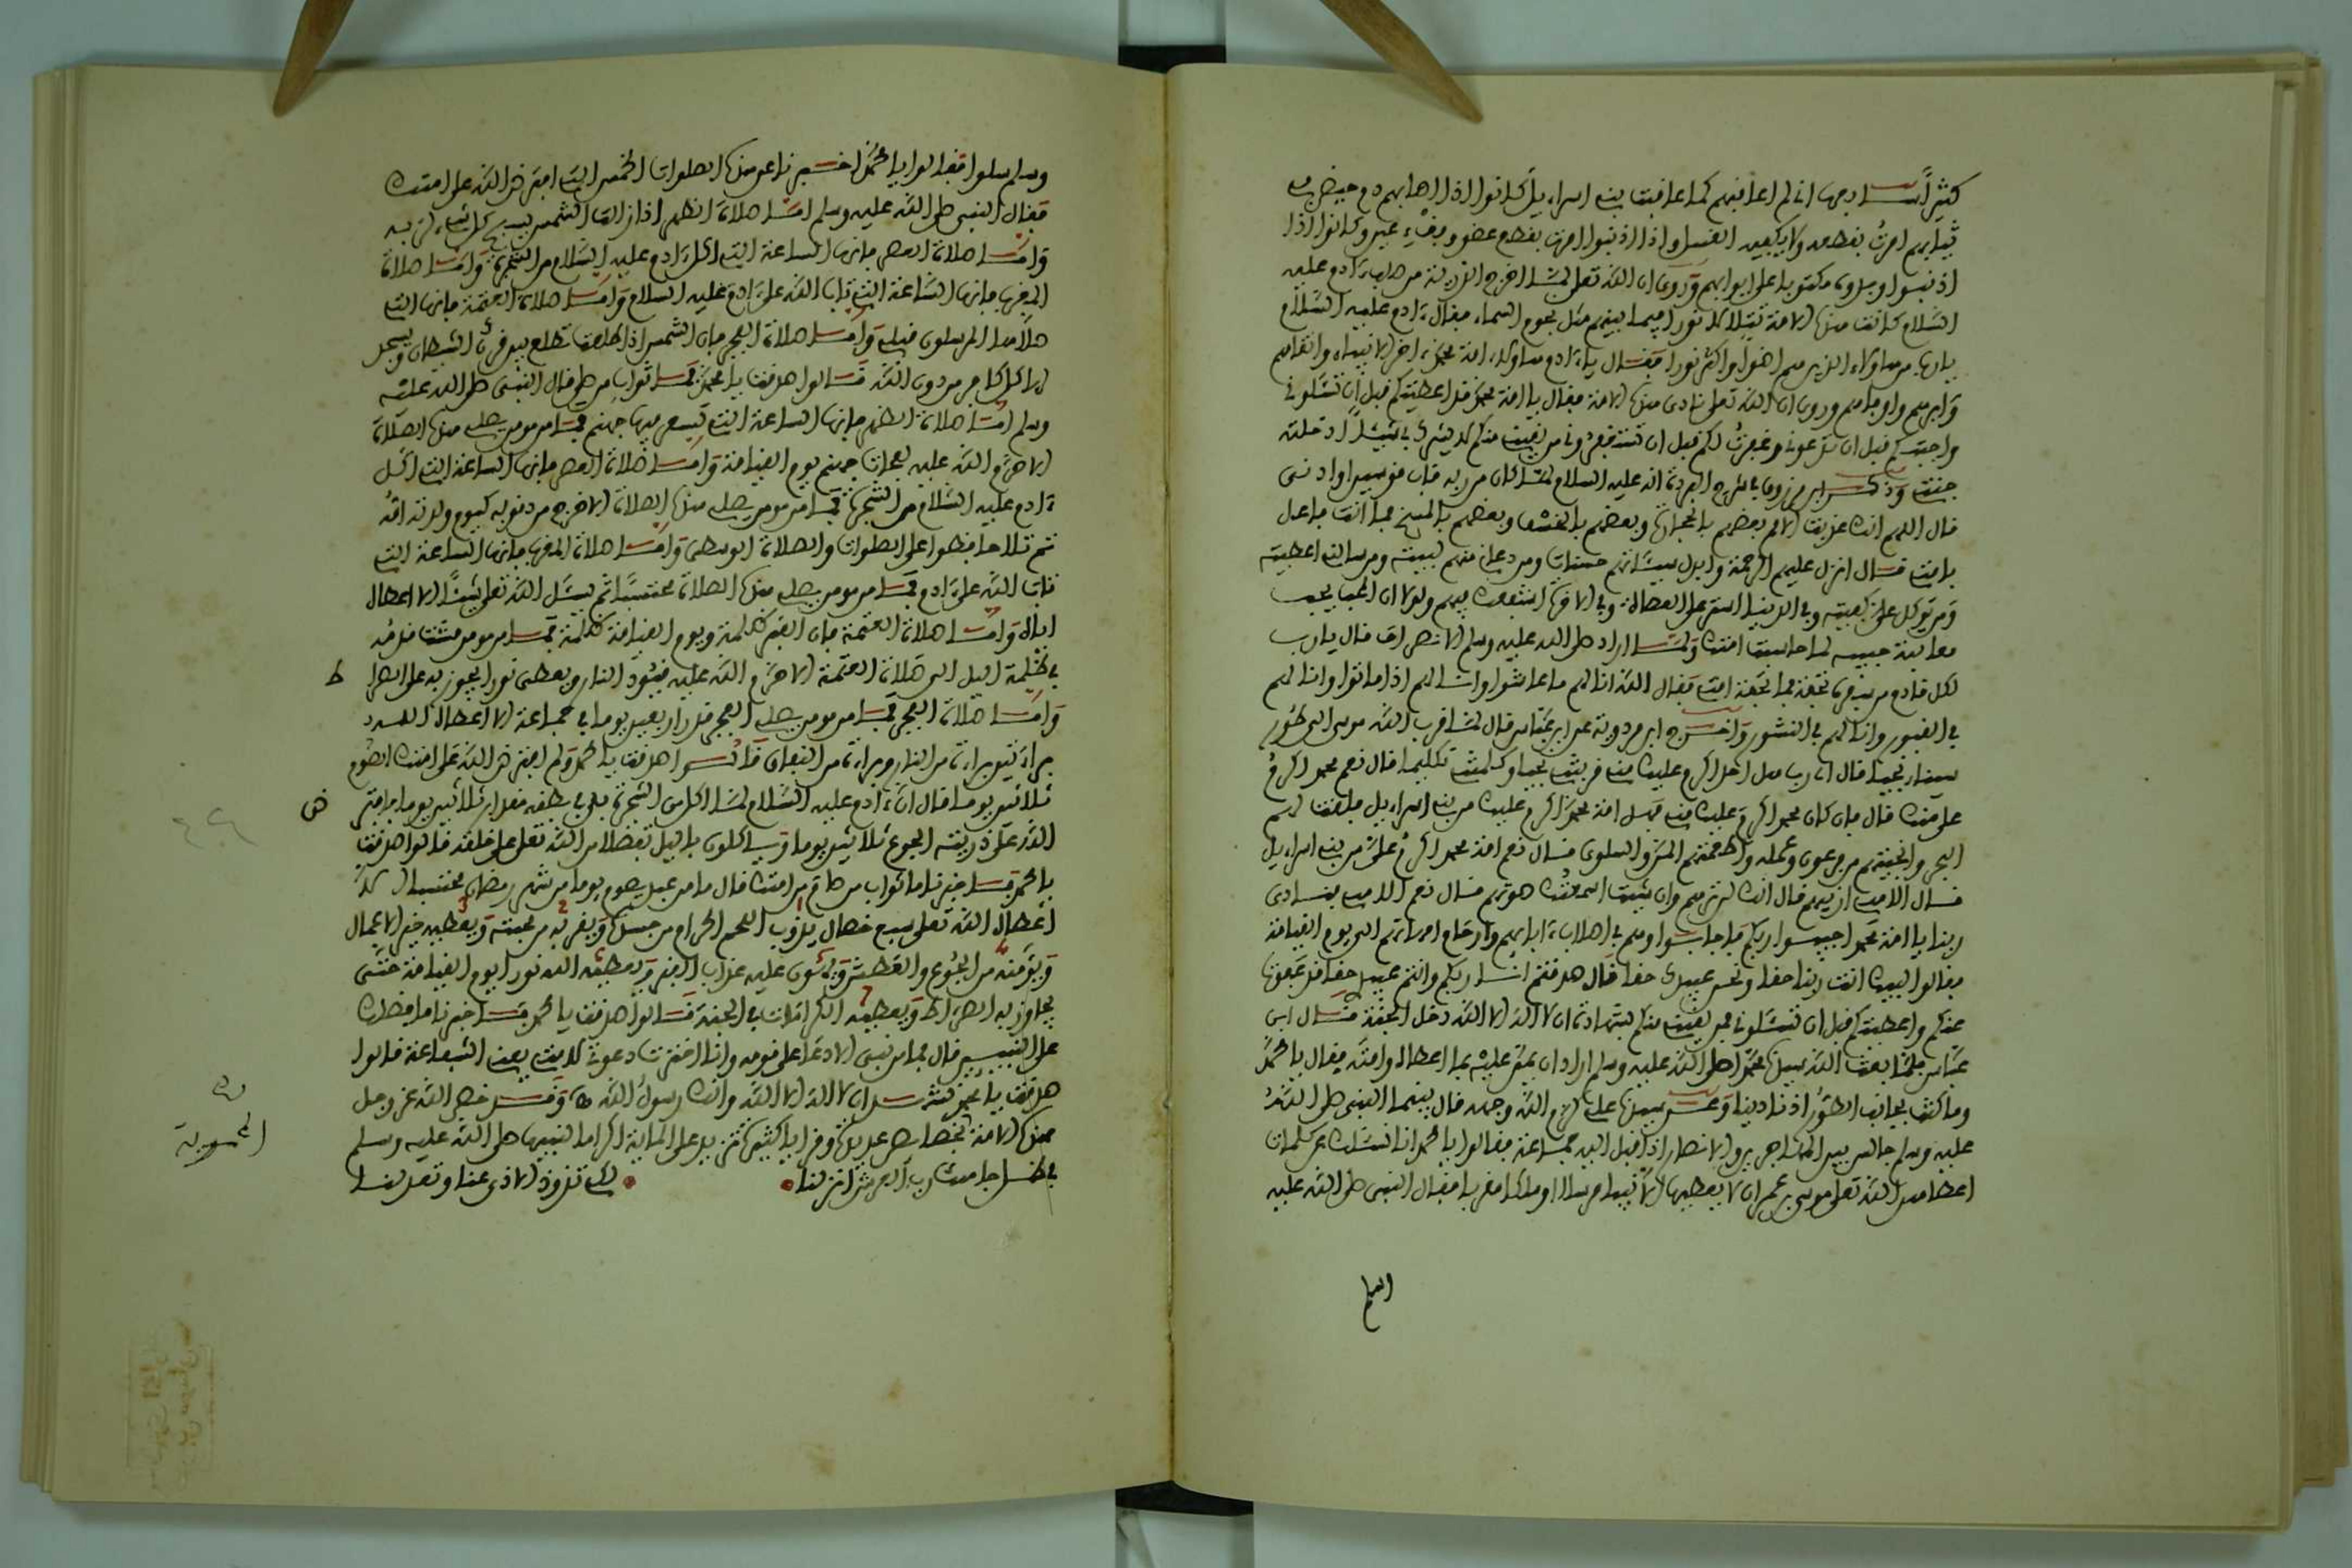 كثيرا منها اني لم اعاقبهم كما عاقبت بني اسراءيل كانوا اذا اصابهم دم حيض من
ثيابهم امرت بقطعه ولا يكفيه الغسل واذا اذنبوا امرت بقطع عضو وفيء عين وكانوا اذا
اذنبوا وجدوه مكتوبا على ابوابهم وروي ان الله تعلى لما اخرج الذرية من صلب ءادم عليه
السلام كانت هذه الامة تتلألأ نورا فيما بينهم مثل نجوم السماء فقال ءادم عليه السلام
يا رب من هاؤلاء الذين هم اضوا واكثر نورا فقال يا ءادم هاؤلاء امة محمد ءاخر الانبياء وانه امامهم
وروي ان الله تعلى نادى هذه الامة فقال يا امة محمد قد اعطيتكم قبل ان تسألوني
واجبتكم قبل ان تدعوني وغفرت لكم قبل ان تستغفروني من لقيني منكم لا يشرك بي شيئا ادخلته
جنتي وذكر ابن مرزوق في شرح البردة انه عليه السلام لما كان من ربه قاب قوسين او ادنى
قال اللهم انك عذبت الامم بعضهم بالحجارة وبعضهم بالخسف وبعضهم بالمسخ فما انت فاعل
بامتي قال انزل عليهم الرحمة وابدل سيئاتهم حسنات ومن دعاني منهم لبيته ومن سالني اعطيته
ومن توكل علي كفيته وفي الدنيا استر على العصاة وفي الاخرة اشفعك فيهم ولولا ان الحبيب يحب
معاتبة حبيبه لما حاسبت امتك ولما اراد صلى الله عليه وسلم الانصراف قال يا رب
لكل قادم من سفره تحفة فما تحفة امتي فقال الله انا لهم ما عاشوا وانا لهم اذا ماتوا وانا لهم
في القبور وانا لهم في النشور واخرج ابن مردوية عن ابن عباس قال لما قرب الله موسى الى طور
سيناء نجيا قال اي رب هل احد اكرم عليك مني قربتني نجيا وكلمتني تكليما قال نعم محمد اكرم
علي منك قال فان كان محمد اكرم عليك مني فهل امة محمد اكرم عليك من بني اسراءيل فلقت لهم
البحر وانجيتهم من فرعون وعمله واطعمتهم المن والسلوى قال نعم امة محمد اكرم علي من بني اسراءيل
قال الاهي ارنيهم قال انك لن تراهم وان شئت اسمعتك صوتهم قال نعم الاهي فنادى
ربنا يا امة محمد اجيبوا ربكم فاجابوا وهم في اصلاب ءابائهم وارحام امهاتهم الى يوم القيامة
فقالوا لبيك انت ربنا حقا ونحن عبيدك حقا قال صدقتم انا ربكم وانتم عبيدي حقا قد عفوت
عنكم واعطيتكم قبل ان تسألوني فمن لقيني منكم بشهادة ان لا اله الا الله دخل الجنة قال ابن
عباس فلما بعث الله سيدنا محمدا صلى الله عليه وسلم اراد ان يمن عليه بما اعطاه وامته فقال يا محمد
وما كنت بجانب الطور اذ نادينا وعن سيدنا علي كرم الله وجهه قال بينما النبي صلى الله
عليه وسلم جالس بين المهاجرين والانصار اذ اقبل اليه جماعة فقالوا يا محمد انا نسئلك عن كلمات
اعطاهن الله تعلى موسى بن عمران لا يعطيها الا نبيا مرسلا او ملكا مقربا فقال النبي صلى الله عليه
وسلم
وسلم سلوا فقالوا يا محمد اخبرنا عن هذه الصلوات الخمس التي افترض الله على امتك
فقال النبي صلى الله عليه وسلم اما صلاة الظهر اذا زالت الشمس يسبح كل شيء لربه
واما صلاة العصر فانها الساعة التي اكل ءادم عليه السلام من الشجرة واما صلاة
المغرب فانها الساعة التي تاب الله على ءادم عليه السلام واما صلاة العتمة فانها التي
صلاها المرسلون قبلي واما صلاة الفجر فان الشمس اذا طلعت تطلع بين قرني الشيطان ويسجد
لها كل كافر من دون الله قالوا صدقت يا محمد فما ثواب من صلى قال النبي صلى الله عليه
وسلم اما صلاة الظهر فانها الساعة التي تسعر فيها جهنم فما من مومن يصلي هذه الصلاة
الا حرم الله عليه لفحات جهنم يوم القيامة واما صلاة العصر فانها الساعة التي اكل
ءادم عليه السلام من الشجرة فما من مومن يصلي هذه الصلاة الا خرج من ذنوبه كيوم ولدته امه
ثم تلا حافظوا على الصلوات والصلاة الوسطى واما صلاة المغرب فانها الساعة التي
تاب الله على ءادم فما من مومن يصلي هذه الصلاة محتسبا ثم يسئل الله تعلى شيئا الا اعطاه
اياه واما صلاة العتمة فان القبر ظلمة ويوم القيامة ظلمة فما من مومن مشت قدمه
في ظلمة اليل الى صلاة العتمة الا حرم الله عليه وقود النار ويعطى نورا يجوز به على الصراط
واما صلاة الفجر فما من مومن يصلي الفجر قدر اربعين يوما في جماعة الا اعطاه الله
براءتين براءة من النار وبراءة من النفاق قالوا صدقت يا محمد ولم افترض الله على امتك الصوم
ثلاثين يوما قال ان ءادم عليه السلام لما اكل من الشجرة بقي في بطنه مقدار ثلاثين يوما فافترض
الله على ذريته الجوع ثلاثين يوما وياكلون باليل تفضلا من الله تعلى على خلقه قالوا صدقت
يا محمد فاخبرنا ما ثواب من صام من امتك قال ما من عبد يصوم يوما من شهر رمضان محتسبا الا
اعطاه الله تعلى سبع خصال يذوب اللحم الحرام من جسده ويقربه من رحمته ويعطيه خير الاعمال
ويؤمنه من الجوع والعطش ويهون عليه عذاب القبر ويعطيه الله نورا يوم القيامة حتى
يجاوز به الصراط ويعطيه الكرامات في الجنة قالوا صدقت يا محمد فاخبرنا ما فضلك
على النبيين قال فما من نبي الا دعا على قومه وانا اخترت دعوتي لامتي يعني الشفاعة قالوا
صدقت يا محمد نشهد ان لا اله الا الله وانك رسول الله وقد خص الله عز وجل
هذه الامة بخصائص عديدة ومزايا كثيرة تزيد على المائة اكراما لنبيها صلى الله عليه وسلم
رب العرش انزلنا لكي تذود الاذى عنا وتعدلنا
ط
ض
المحمدية